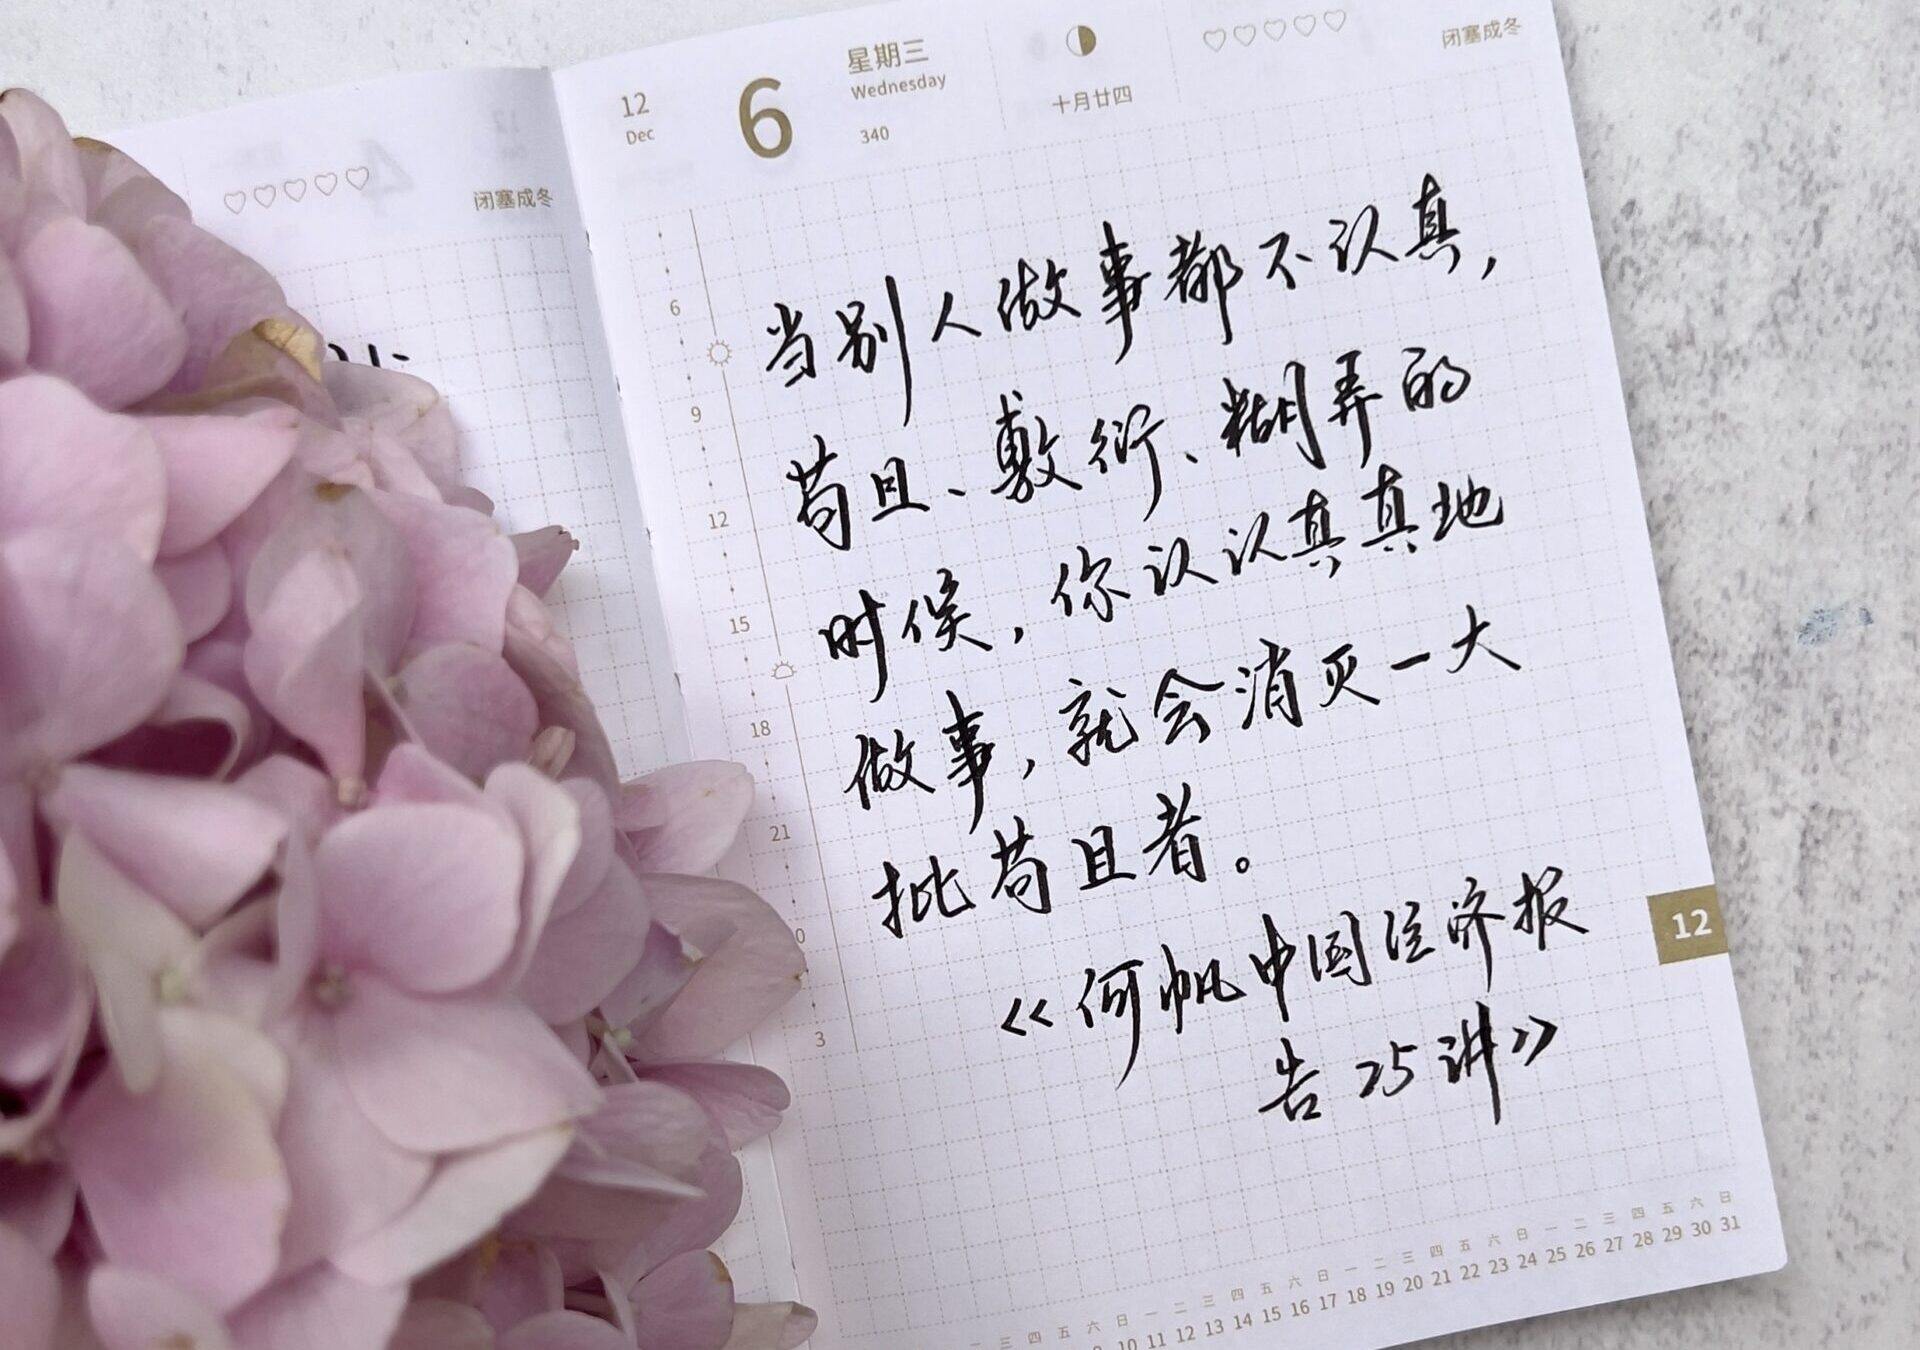 闭塞成冬
12
Dec
6
星期三
Wednesday
340
十月廿四
闭塞成冬
6
9
12
15
18
21
0
3
当别人做事都不认真，
苟且、敷衍、糊弄的
时候，你认认真真地
做事，就会消灭一大
批苟且者。
《何帆中国经济报
告25讲》
12
一 三 四 五 六 日 一 二 三 四 五 六 日 一 二 三 四 五 六 日 一 二 三 四 五 六 日
9 10 11 12 13 14 15 16 17 18 19 20 21 22 23 24 25 26 27 28 29 30 31